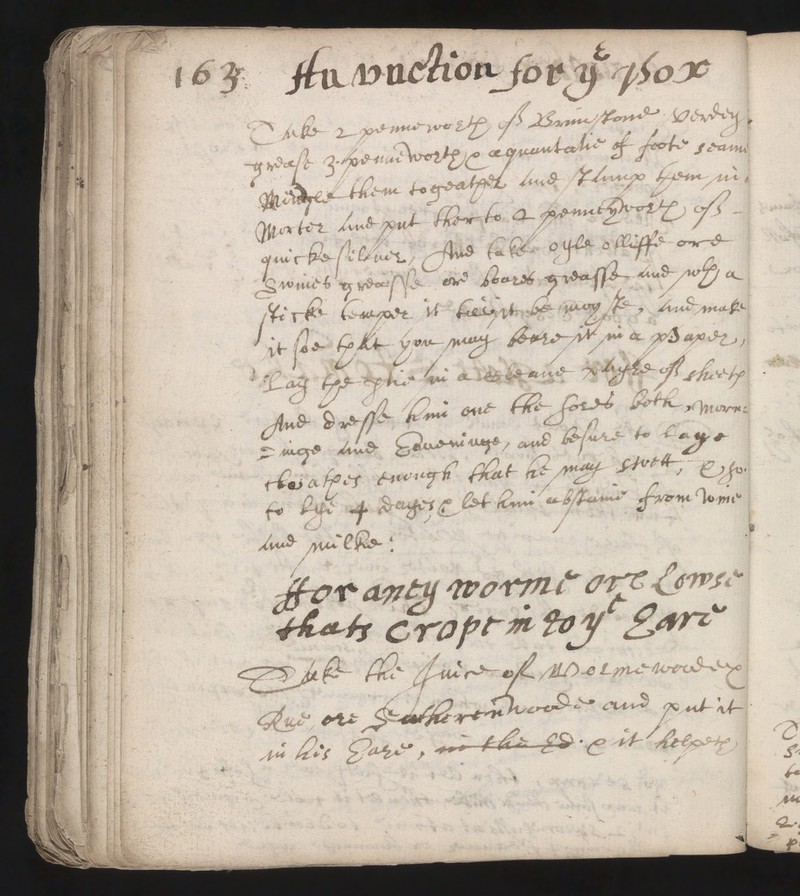 163 An vnction for yͤ Pox
Take 2 penneworth of Brimstone verdeg-
grease 3 penneworth & a quantatie of foote seame
Mingle them togeather and stamp them in
Morter and put therto 2 penneyworth of
quickesiluer, And take oyle olliffe ore
Swines greasse ore boares greasse and wth a
sticke temper it till it be moyste, and make
it soe that you may beare it in a paper,
Lay the in a cleane payre of sheets
And dresse him one the sores both morn-
inge and Eaueninge, and besure to Laye
cloathes enough that he may swett, & so
to lye 4 dayes & let him abstaine from wine
and milke:
ffor aney worme ore Lowse
thats crope in to yͤ Eare
Take the Juice of wormewoode &
Rue ore Sutherenwoode and put it
in his Eare, in the Ed & it helpeth